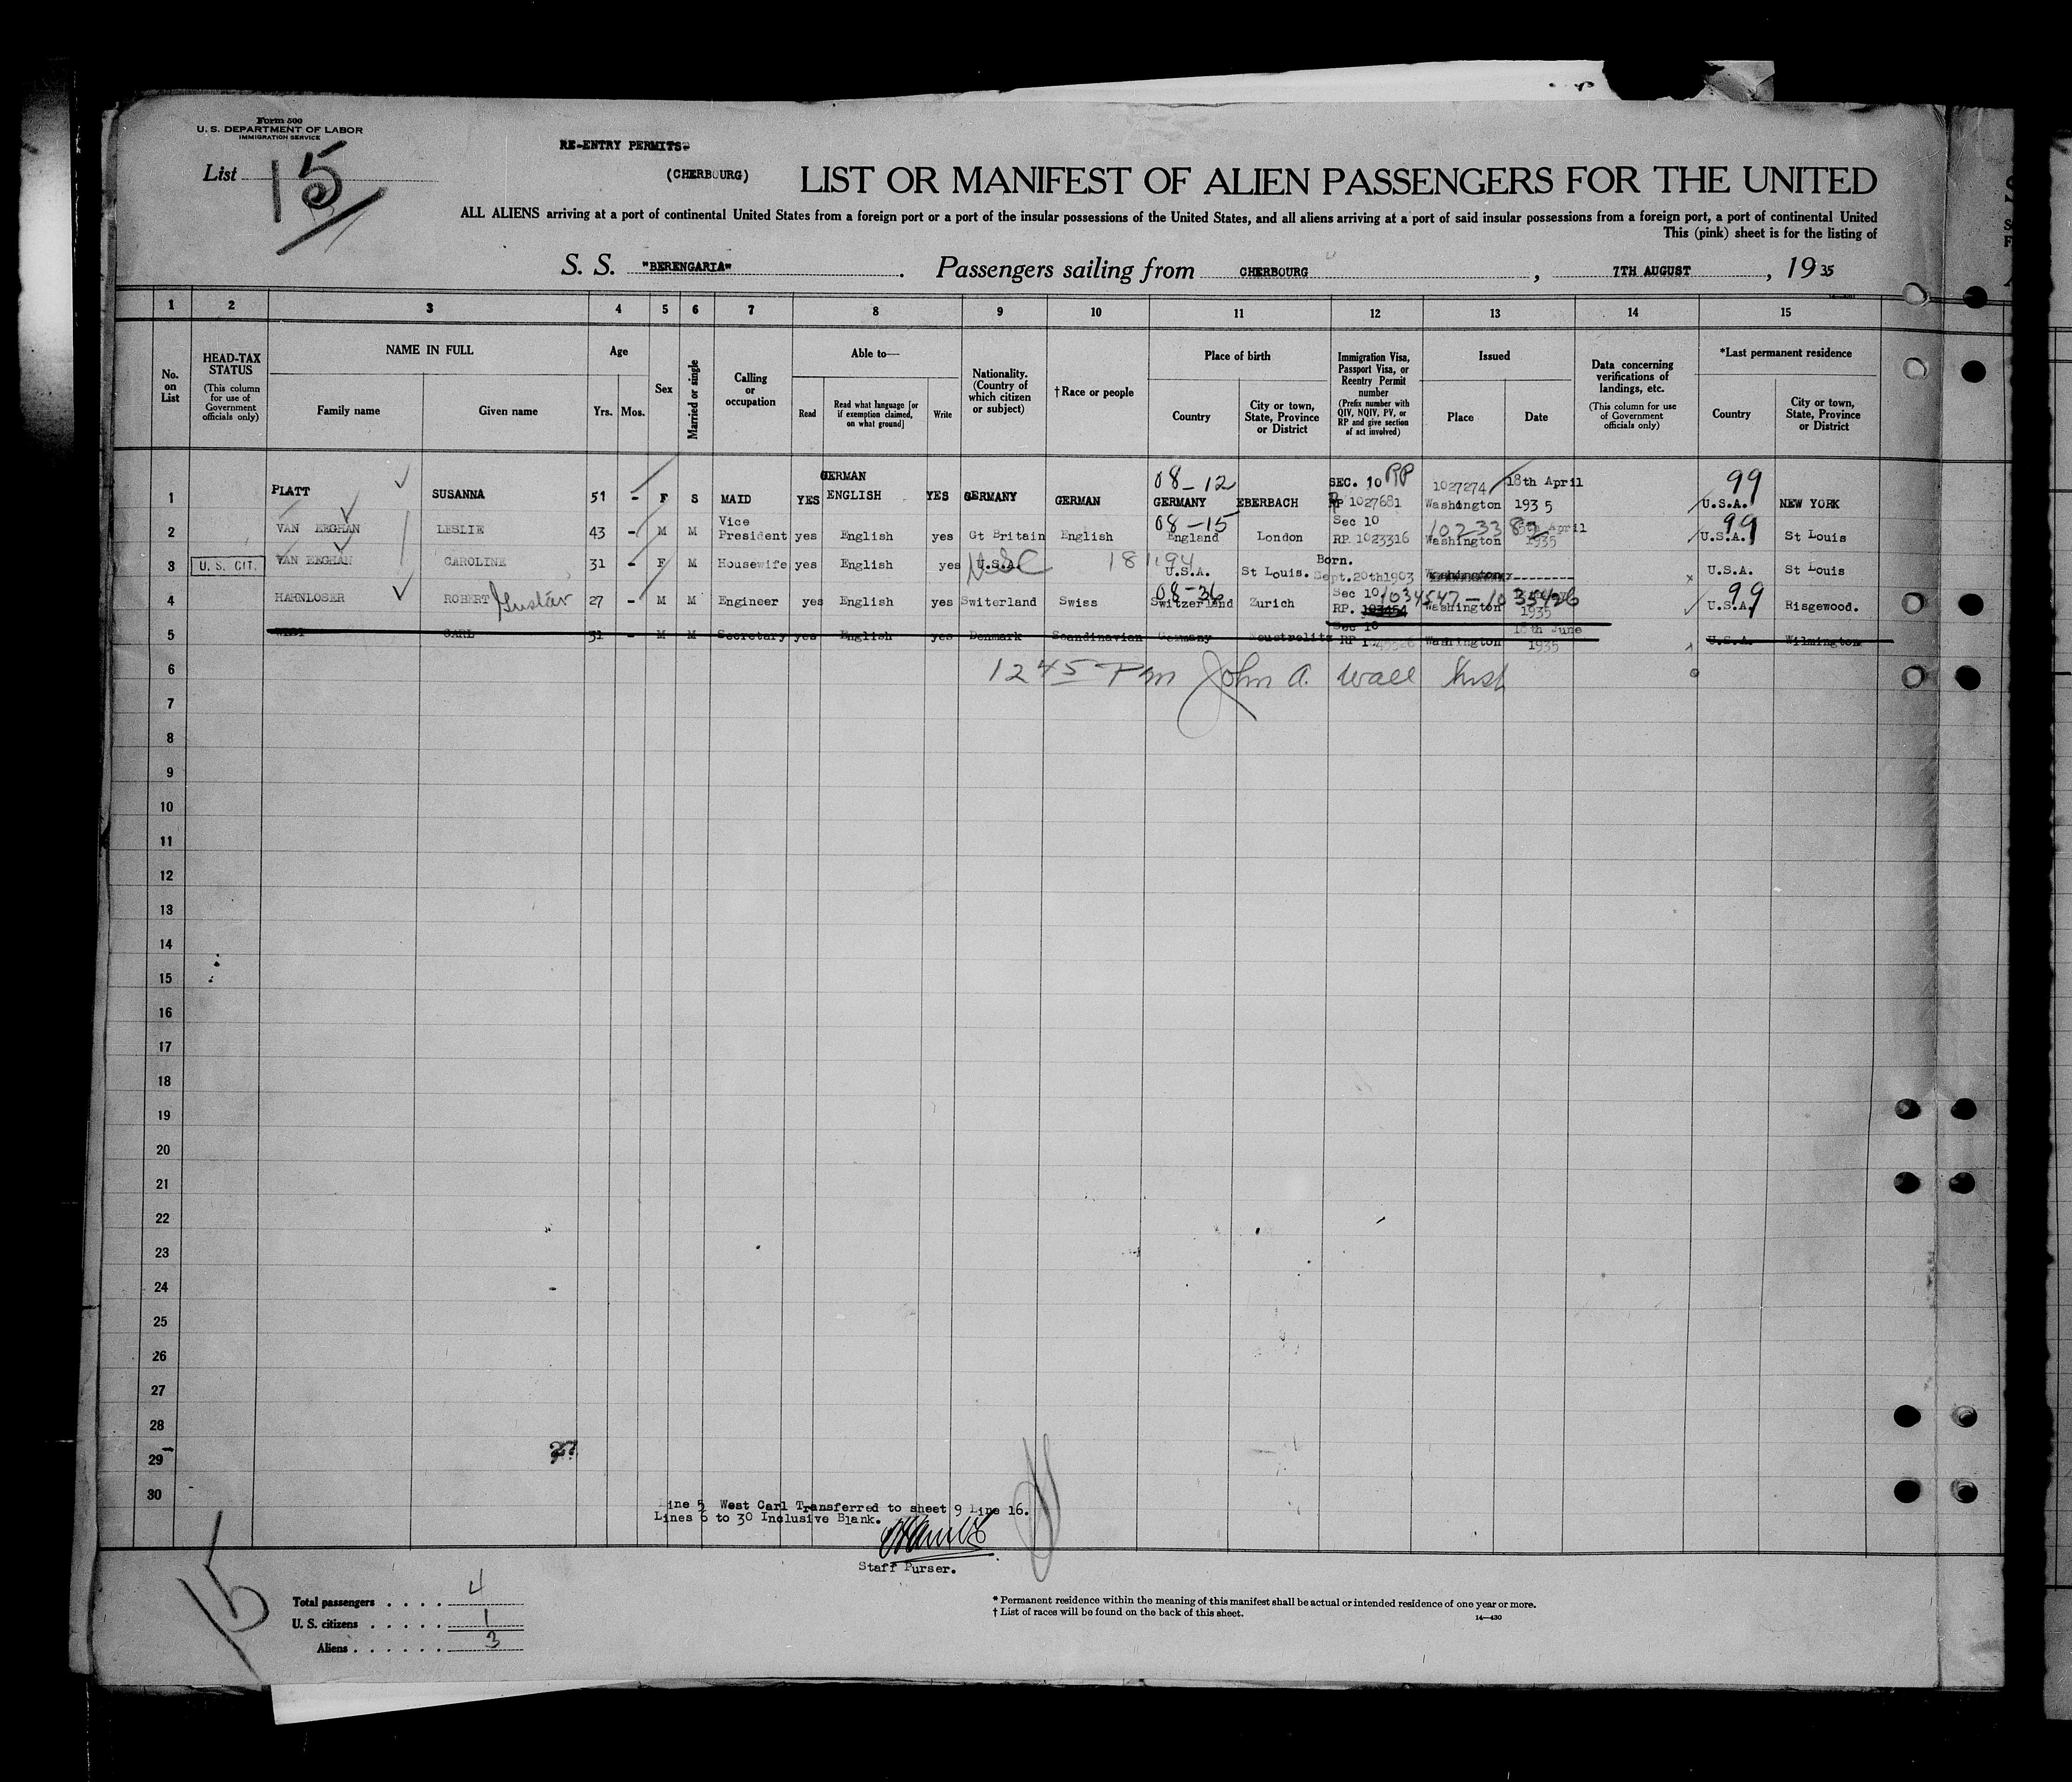 Form 500
U. S. DEPARTMENT OF LABOR
IMMIGRATION SERVICE
List 15
RE-ENTRY PERMITS.
(CHERBOURG)
LIST OR MANIFEST OF ALIEN PASSENGERS FOR THE UNITED
ALL ALIENS arriving at a port of continental United States from a foreign port or a port of the insular possessions of the United States, and all aliens arriving at a port of said insular possessions from a foreign port, a port of continental United
This (pink) sheet is for the listing of
S. S. "BERENGARIA". Passengers sailing from CHERBOURG, 7TH AUGUST, 1935
1 2 3 4 5 6 7 8 9 10 11 12 13 14 15
No. on List
HEAD-TAX STATUS (This column for use of Government officials only)
NAME IN FULL
Family name Given name
Age
Yrs. Mos.
Sex
Married or single
Calling or occupation
Able to—
Read Read what language [or if exemption claimed, on what ground] Write
Nationality. (Country of which citizen or subject)
†Race or people
Place of birth
Country City or town, State, Province or District
Immigration Visa, Passport Visa, or Reentry Permit number (Prefix number with QIV, NQIV, PV, or RP and give section of act involved)
Issued
Place Date
Data concerning verifications of landings, etc. (This column for use of Government officials only)
*Last permanent residence
Country City or town, State, Province or District
GERMAN 08-12 SEC. 10 RP 1027274 18th April 99
1 PLATT SUSANNA 51 - F S MAID YES ENGLISH YES GERMANY GERMAN GERMANY EBERBACH RP 1027681 Washington 1935 U.S.A. NEW YORK
Vice 08-15 Sec 10 April 99
2 VAN EEGHAN LESLIE 43 - M M President yes English yes Gt Britain English England London RP. 1023316 Washington 1935 U.S.A. St Louis
USC 18 1.94 Born.
3 U. S. CIT. VAN EEGHAN CAROLINE 31 - F M Housewife yes English yes U.S.A. U.S.A. St Louis. Sept.20th1903 Washington U.S.A. St Louis
08-36 Sec 10 1034547-1035426 99
4 HAHNLOSER ROBERT Gustav 27 - M M Engineer yes English yes Switerland Swiss Switzerland Zurich RP. 103454 Washington 1935 U.S.A. Risgewood.
Sec 10 18th June
5 WEST CARL 31 - M M Secretary yes English yes Denmark Scandinavian Germany RP Washington 1935 U.S.A. Wilmington
6 1245 Pm John A. Wall
7
8
9
10
11
12
13
14
15
16
17
18
19
20
21
22
23
24
25
26
27
28
29
30
Line 5 West Carl Transferred to sheet 9 Line 16.
Lines 6 to 30 Inclusive Blank.
Staff Purser.
15
Total passengers . . . . 4
U. S. citizens . . . . . 1
Aliens . . . . . . 3
* Permanent residence within the meaning of this manifest shall be actual or intended residence of one year or more.
† List of races will be found on the back of this sheet.
14—430